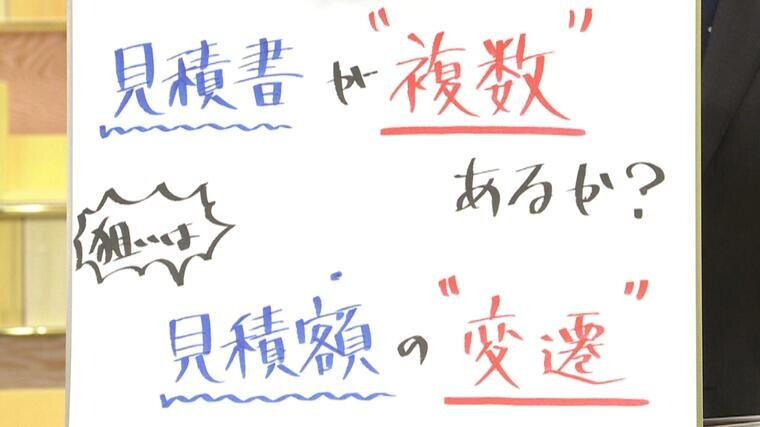 見積書が"複数"
あるか?
狙いは
見積額の"変遷"